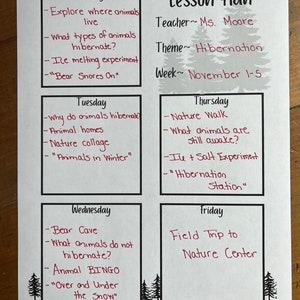 Lesson Plan
Teacher~ Ms. Moore
Theme~ Hibernation
Week~ November 1-5
- Explore where animals
live
- What types of animals
hibernate?
- Ice melting experiment
- "Bear Snores On"
Tuesday
- Why do animals hibernate?
- Animal homes
- Nature collage
- "Animals in Winter"
Wednesday
- Bear Cave
- What animals do not
hibernate?
- Animal BINGO
- "Over and Under
the Snow"
Thursday
- Nature Walk
- What animals are
still awake?
- Ice + Salt Experiment
- "Hibernation
Station"
Friday
Field Trip to
Nature Center